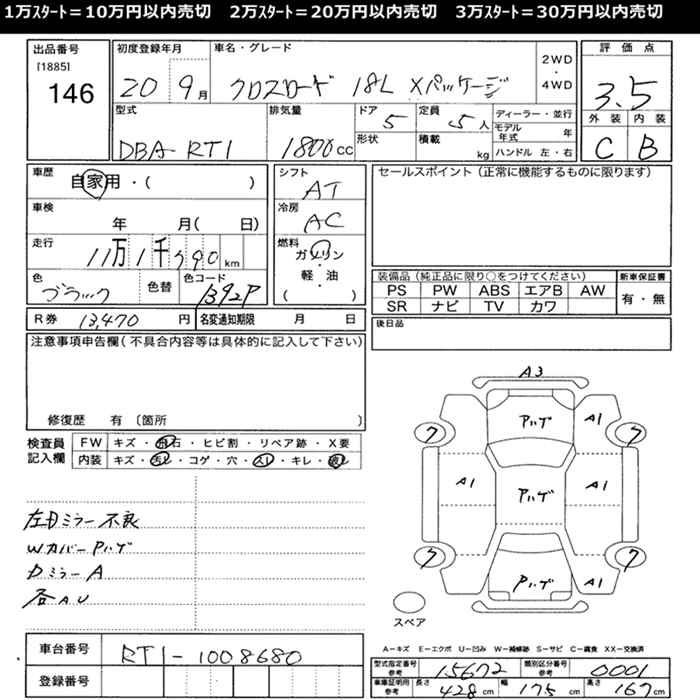 1万スタート＝10万円以内売切　2万スタート＝20万円以内売切　3万スタート＝30万円以内売切
出品番号
[1885]
146
初度登録年月
20 9月
車名・グレード
クロスロード 18L Xパッケージ
2WD
・
4WD
評価点
3.5
外装 内装
C B
型式
DBA-RT1
排気量
1800cc
ドア
5
定員
5人
形状
積載
kg
ディーラー・並行
モデル年式 年
ハンドル 左・右
車歴
自家用・( )
車検
年 月( 日)
走行
11万1千990km
色
ブラック
色替
色コード
B92P
シフト
AT
冷房
AC
燃料
ガソリン
・
軽・油
( )
セールスポイント（正常に機能するものに限ります）
装備品（純正品に限り○をつけてください）
PS PW ABS エアB AW
SR ナビ TV カワ
新車保証書
有・無
R券 13,470円
名変通知期限 月 日
後日品
注意事項申告欄(不具合内容等は具体的に記入して下さい)
修復歴 有〔箇所 )
検査員
記入欄
FW キズ・飛石・ヒビ割・リペア跡・X要
内装 キズ・汚レ・コゲ・穴・スレ・キレ・破レ
左Dミラー不良
Wカバー Pハゲ
DミラーA
各AU
A3
Pハゲ
A1
フ フ
A1
Pハゲ
A1
フ フ
Pハゲ
A1
スペア
A－キズ E－エクボ U－凹み W－補修跡 S－サビ C－腐食 XX－交換済
車台番号
RT1-1008680
登録番号
型式指定番号
参考
15672
類別区分番号
参考
0001
車庫証明用
参考
長さ 428cm 幅 175cm 高さ 167cm